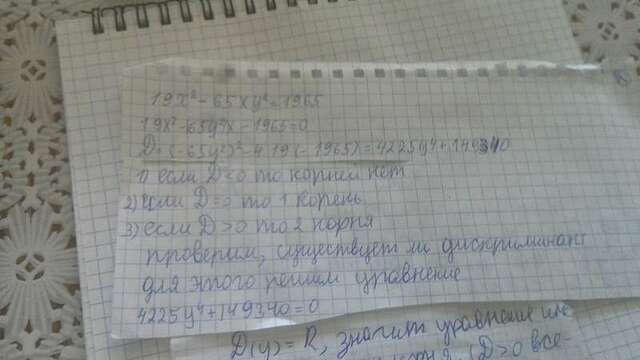 19x² - 65xy² = 1965
19x² - 65y²x - 1965 = 0
D = (-65y²)² - 4·19·(-1965) = 4225y⁴ + 149340
1) если D<0 то корней нет
2) если D=0 то 1 корень
3) если D>0 то 2 корня
проверим, существует ли дискриминант
для этого решим уравнение
4225y⁴ + 149340 = 0
D(y) = R, значит уравнение
(D>0 все-